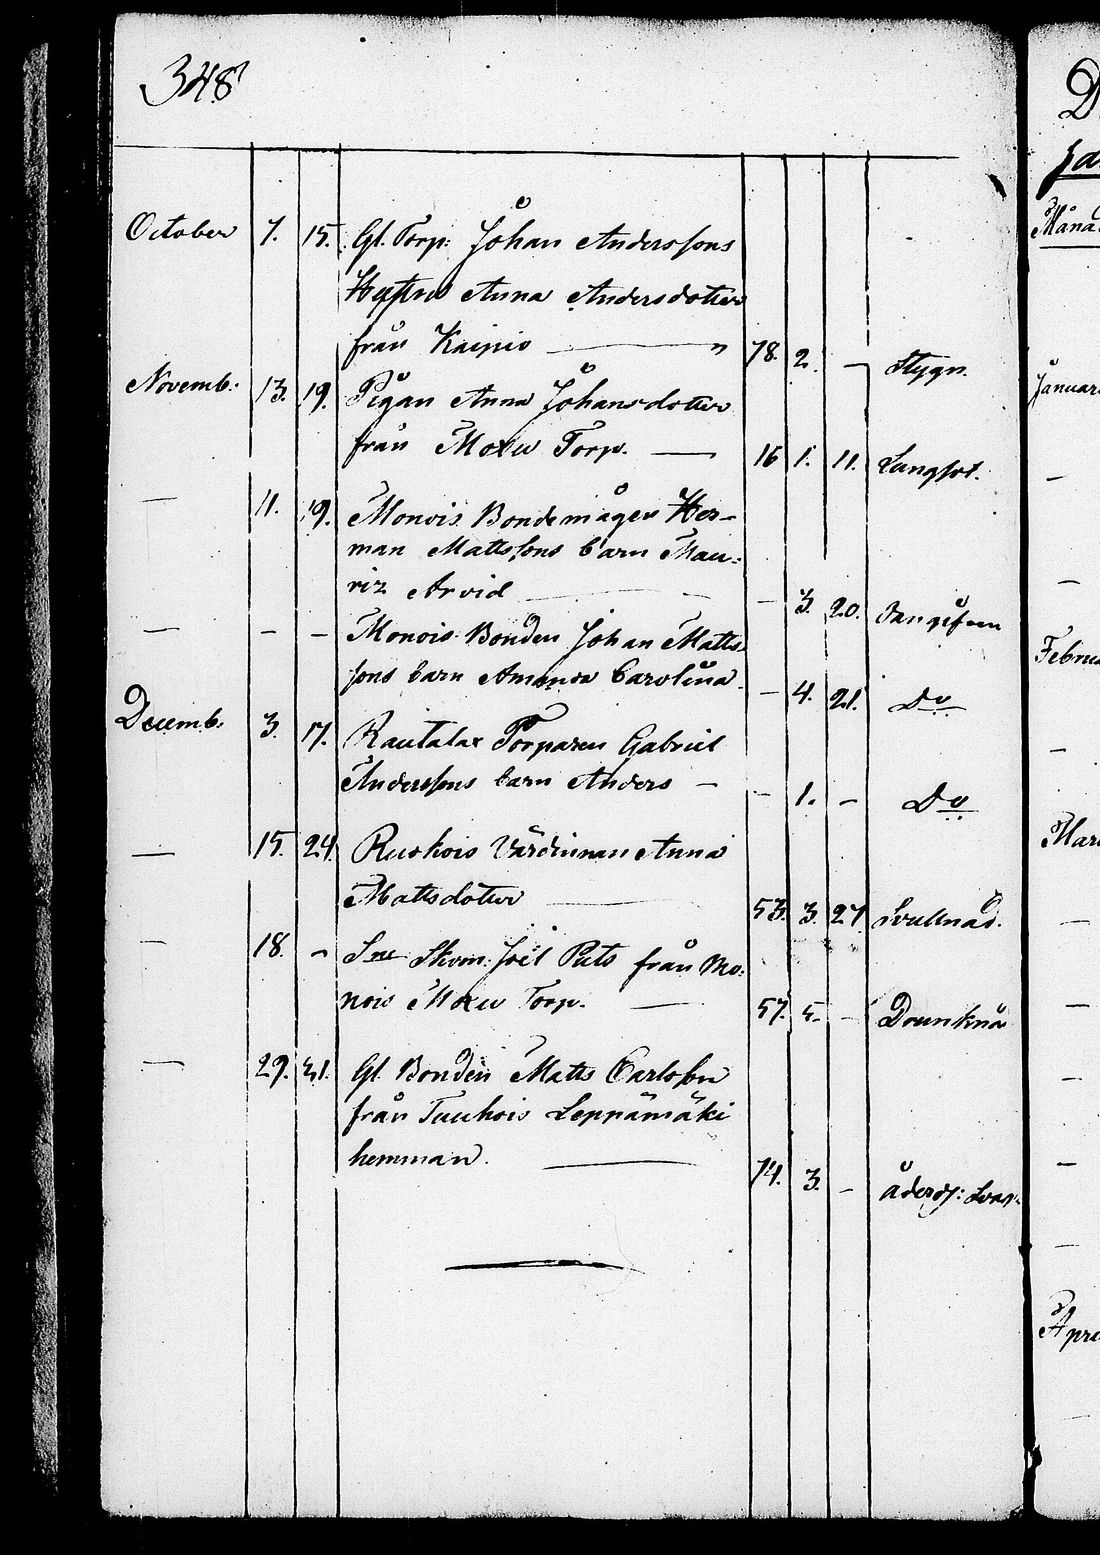 348
October 7. 15. Gl. Torp: Johan Anderssons
Hustru Anna Andersdotter
från Kaipio — " 78. 2. — Stygn.
Novemb: 13. 19. Pigan Anna Johansdotter
från Moxu Torp. — 16 1. 11. Lungsot.
— 11. 19. Monois Bondemågen Her-
man Mattssons barn Mau-
riz Arvid — — 3. 20.
— — — Monois Bonden Johan Matts-
sons barn Amanda Carolina — 4. 21. Do
Decemb: 3. 17. Rautalax Torparen Gabriel
Anderssons barn Anders — — 1. — Do
— 15. 24. Ruskois Värdinnan Anna
Mattsdotter — 53. 3. 27. Svullnad.
— 18. — Skom: Joël Puts från Mo-
nois Moxu Torp. — 57. 5. — Drunkna
— 29. 31. Gl. Bonden Matts Carlsson
från Tuuhois Leppämäki
hemman. — 74. 3. — ålderd: Svag.
D
Månad
Januari
Februa
Mars
Apri